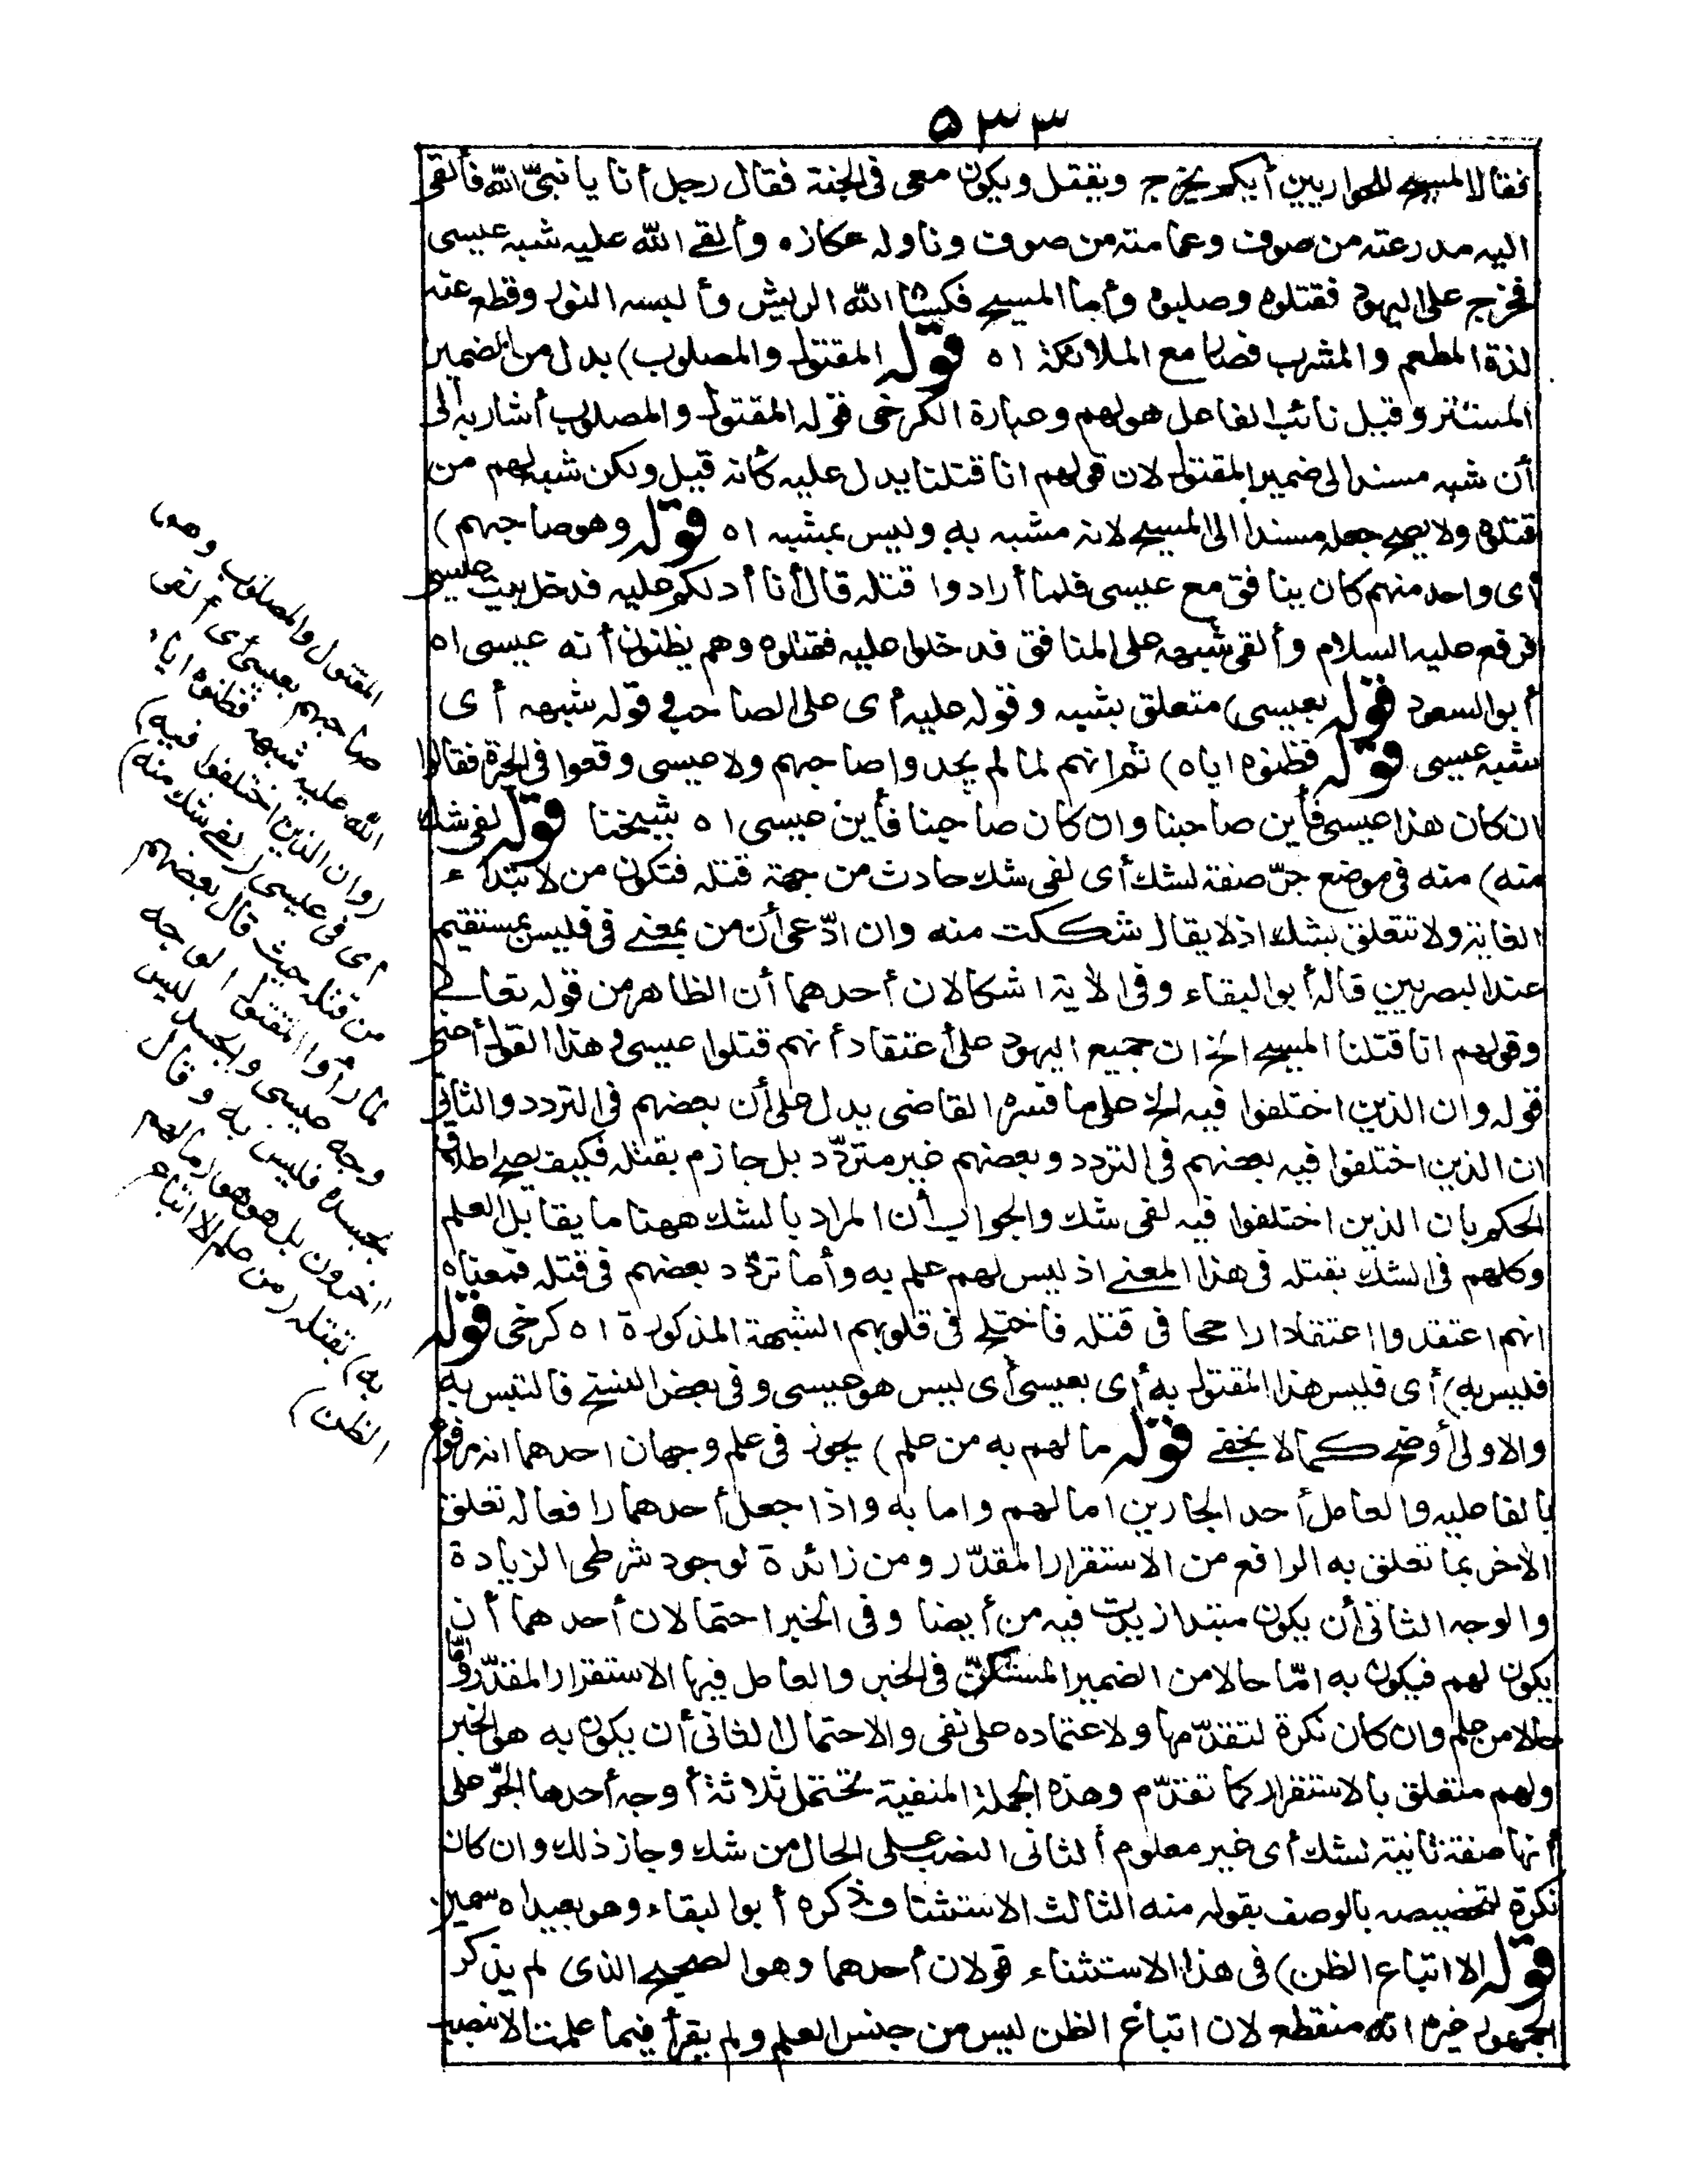 ٥٣٣
فقال المسيح للحواريين أيكم يخرج ويقتل ويكون معى فى الجنة فقال رجل أنا يا نبىّ الله فألقى
اليه مدرعته من صوف وعمامته من صوف وناوله عكازه وألقى الله عليه شبه عيسى
فخرج على اليهود فقتلوه وصلبوه وأما المسيح فكساه الله الريش وألبسه النور وقطع عنه
لذة المطعم والمشرب فصار مع الملائكة اه قوله المقتول والمصلوب) بدل من الضمير
المستتر وقيل نائب الفاعل هو لهم وعبارة الكرخى قوله المقتول والمصلوب أشار به الى
أن شبه مسند الى ضمير المقتول لان قولهم انا قتلنا يدل عليه كأنه قيل ولكن شبه لهم من
قتلوه ولا يصح جعله مسندا الى المسيح لانه مشبه به وليس بمشبه اه قوله وهو صاحبهم)
أى واحد منهم كان ينافق مع عيسى فلما أرادوا قتله قال أنا أدلكم عليه فدخل بيت عيسى
فرفع عليه السلام وألقى شبهه على المنافق فدخلوا عليه فقتلوه وهم يظنون أنه عيسى اه
أبو السعود قوله بعيسى) متعلق بشبه وقوله عليه أى على الصاحب وقوله شبهه أى
شبه عيسى قوله فظنوه اياه) ثم انهم لما لم يجدوا صاحبهم ولا عيسى وقعوا فى الحيرة فقالوا
ان كان هذا عيسى فأين صاحبنا وان كان صاحبنا فأين عيسى اه شيخنا قوله لفى شك
منه) منه فى موضع جرّ صفة لشك أى لفى شك حادث من جهة قتله فتكون من لابتداء
الغاية ولا تتعلق بشك اذ لا يقال شككت منه وان ادّعى أن من بمعنى فى فليس بمستقيم
عند البصريين قاله أبو البقاء وفى الآية اشكالان أحدهما أن الظاهر من قوله تعالى
وقولهم انا قتلنا المسيح الخ ان جميع اليهود على اعتقاد أنهم قتلوا عيسى وهذا القول أعنى
قوله وان الذين اختلفوا فيه الخ على ما فسره القاضى يدل على أن بعضهم فى التردد والثانى
ان الذين اختلفوا فيه بعضهم فى التردد وبعضهم غير متردّد بل جازم بقتله فكيف يصح اطلاق
الحكم بان الذين اختلفوا فيه لفى شك والجواب أن المراد بالشك ههنا ما يقابل العلم
وكلهم فى الشك بقتله فى هذا المعنى اذ ليس لهم علم به وأما تردّد بعضهم فى قتله فمعناه
انهم اعتقدوا اعتقادا راجحا فى قتله فاختلج فى قلوبهم الشبهة المذكورة اه كرخى قوله
فليس به) أى فليس هذا المقتول به أى بعيسى أى ليس هو عيسى وفى بعض النسخ فالتبس به
والاولى أوضح كما لا يخفى قوله ما لهم به من علم) يجوز فى علم وجهان احدهما انه مرفوع
بالفاعلية والعامل أحد الجارين اما لهم واما به واذا جعل أحدهما رافعا له تعلق
الآخر بما تعلق به الرافع من الاستقرار المقدّر ومن زائدة لوجود شرطى الزيادة
والوجه الثانى أن يكون مبتدأ زيدت فيه من أيضا وفى الخبر احتمالان أحدهما أن
يكون لهم فيكون به امّا حالا من الضمير المستكنّ فى الخبر والعامل فيها الاستقرار المقدّر وامّا
حالا من علم وان كان نكرة لتقدّمها ولاعتماده على نفى والاحتمال الثانى أن يكون به هو الخبر
ولهم متعلق بالاستقرار كما تقدّم وهذه الجملة المنفية تحتمل ثلاثة أوجه أحدها الجرّ على
أنها صفة ثانية لشك أى غير معلوم الثانى النصب على الحال من شك وجاز ذلك وان كان
نكرة لتخصيصه بالوصف بقوله منه الثالث الاستئناف ذكره أبو البقاء وهو بعيد اه سمين
قوله الا اتباع الظن) فى هذا الاستثناء قولان أحدهما وهو الصحيح الذى لم يذكر
الجمهور غيره انه منقطع لان اتباع الظن ليس من جنس العلم ولم يقرأ فيما علمت الا بنصب
المقتول والمصلوب وهو
صاحبهم بعيسى أى ألقى
الله عليه شبهه فظنوه اياه
(وان الذين اختلفوا فيه)
أى فى عيسى (لفى شك منه)
من قتله حيث قال بعضهم
لما رأوا المقتول الوجه
وجه عيسى والجسد ليس
بجسده فليس به وقال
آخرون بل هو هو (ما لهم
به) بقتله (من علم الا اتباع
الظن)